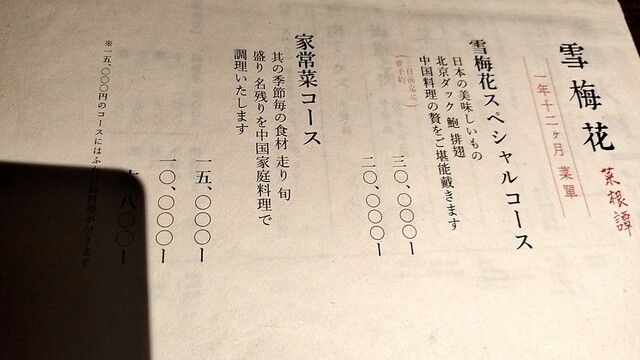 雪梅花
菜根譚
一年十二ヶ月 菜單
雪梅花スペシャルコース
日本の美味しいもの
北京ダック 鮑 排翅
中国料理の贅をご堪能戴きます
三〇、〇〇〇ー
二〇、〇〇〇ー
家常菜コース
其の季節毎の食材 走り 旬
盛り 名残りを中国家庭料理で
調理いたします
一五、〇〇〇ー
一〇、〇〇〇ー
八〇〇ー
※一五、〇〇〇円のコースにはふかひれ料理が付きます